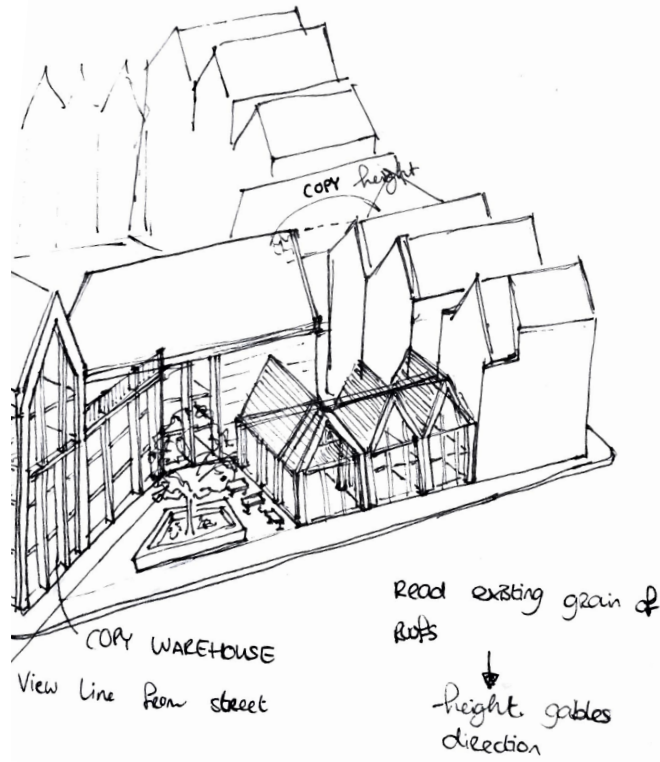 COPY height
COPY WAREHOUSE
View Line from street
Read existing grain of
Roofs
height. gables
direction